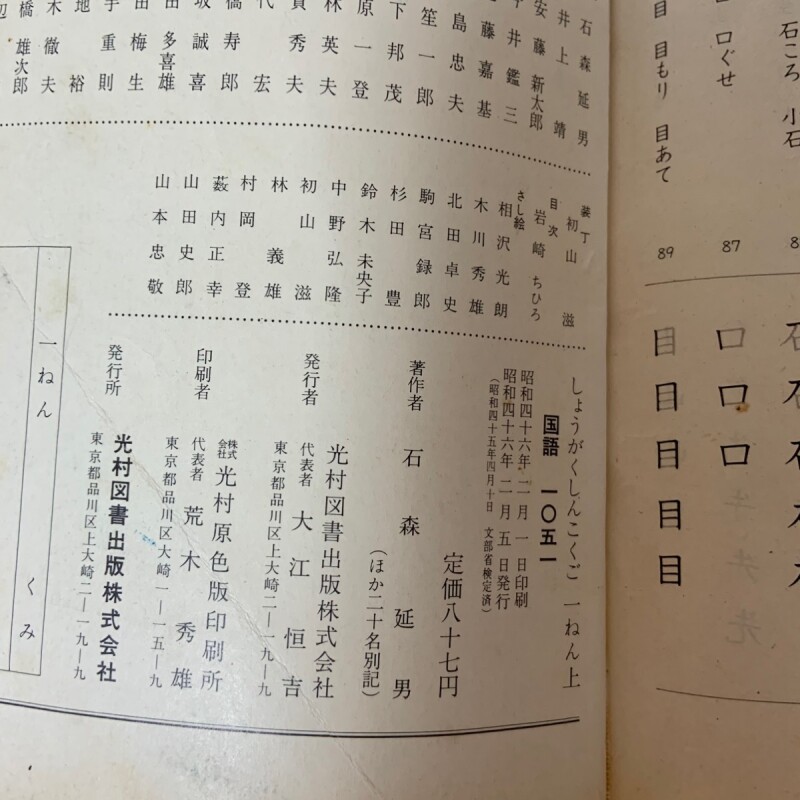 石ころ 小石
口ぐせ 87
目 目もり 目あて 89
石 石 石
口 口 口
目 目 目 目 目
石森延男
井上靖
安藤新太郎
井鑑三
藤嘉基
島忠夫
笙一郎
下邦茂
原一登
林英夫
秀夫
代宏
橋寿郎
坂誠喜
田多喜雄
田梅生
重則
地裕
木徹夫
橋雄次郎
装丁 初山滋
目次 岩崎ちひろ
さし絵 相沢光朗
木川秀雄
北田卓史
駒宮録郎
杉田豊
鈴木未央子
中野弘隆
初山滋
林義雄
村岡登
薮内正幸
山田史郎
山本忠敬
しょうがくしんこくご 一ねん上
国語 一〇五一
昭和四十六年二月一日印刷
昭和四十六年二月五日発行
(昭和四十五年四月十日 文部省検定済)
定価八十七円
著作者 石森延男
(ほか二十名別記)
光村図書出版株式会社
発行者 代表者 大江恒吉
東京都品川区上大崎二―一九―九
株式会社 光村原色版印刷所
印刷者 代表者 荒木秀雄
東京都品川区大崎一―一五―九
発行所 光村図書出版株式会社
東京都品川区上大崎二―一九―九
一ねん くみ